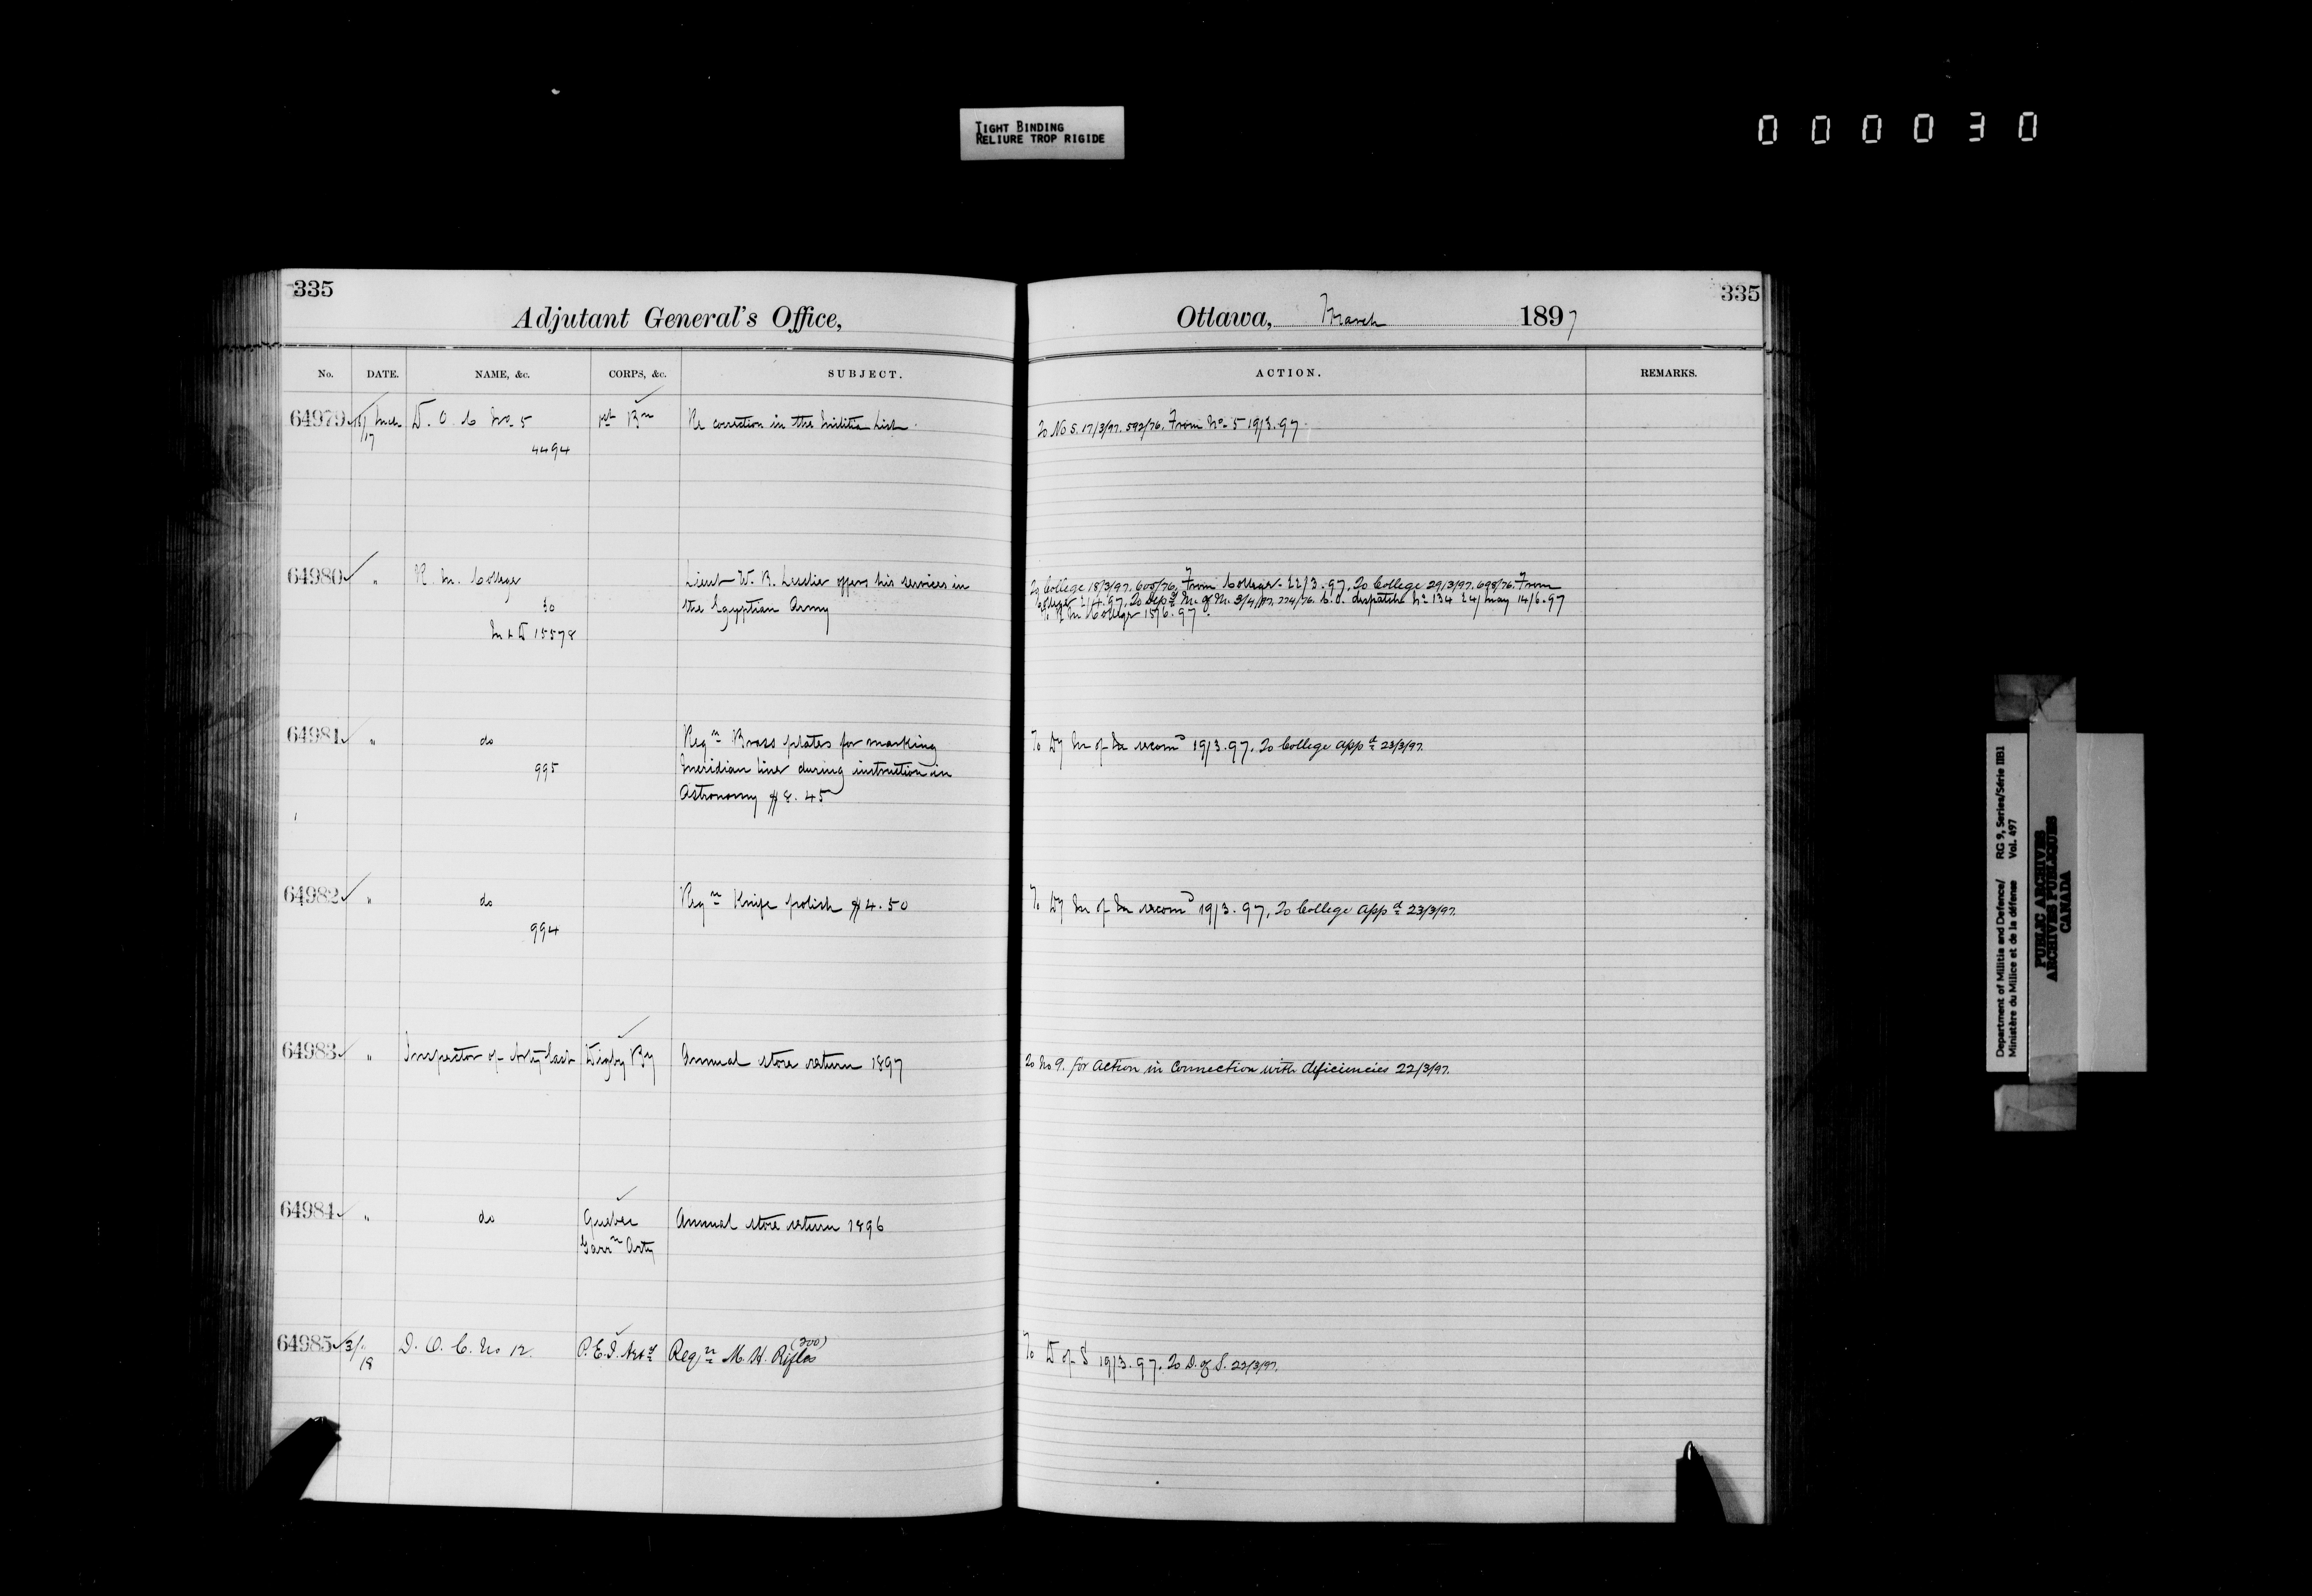 TIGHT BINDING
RELIURE TROP RIGIDE
000030
335
Adjutant General's Office,
No. DATE. NAME, &c. CORPS, &c. SUBJECT.
64979 D. O. C No. 5 1st Bn Re correction in the Militia List.
17
4494
64980 " R. M. College Lieut W. B. Leslie offers his services in
30 the Egyptian Army
M & D 15578
64981 " do Reqn Brass plates for marking
995 Meridian line during instruction in
Astronomy $8.45
64982 " do Reqn Knife polish $4.50
994
64983 " Inspector of Arty Digby By Annual store return 1897
64984 " do Quebec Annual store return 1896
Garrn Arty
64985 3/ D. O. C. No 12. P.E.I. Reqn M. H. Rifles (200)
18
335
Ottawa, March 1897
ACTION. REMARKS.
To No 5. 17/3/97. 592/76. From No. 5 19/3.97
To College 18/3/97. 605/76. From College. 22/3.97. To College 29/3/97. 698/76. From
College 2/4.97. To Dep M. of M. 3/4/97. 774/76. C.O. dispatch No 134 24/May 14/6.97
To R M College 15/6.97.
To Dy M of M recomd 19/3.97. To College appd 23/3/97.
To Dy M of M recomd 19/3.97. To College appd 23/3/97.
To No 9. for action in connection with deficiencies 22/3/97.
To D of S 19/3.97. To D. of S. 22/3/97.
Department of Militia and Defence/ RG 9, Series/Série IIB1
Ministère du Milice et de la défense Vol. 497
PUBLIC ARCHIVES
ARCHIVES PUBLIQUES
CANADA